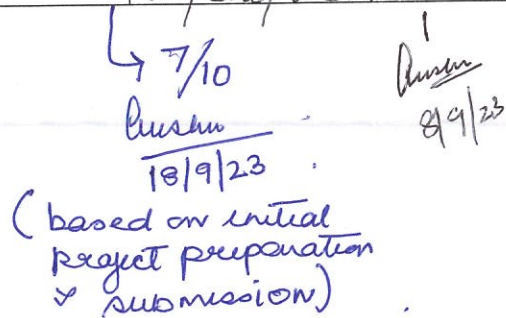 7/10
18/9/23
8/9/23
(based on initial
project preparation
& submission)